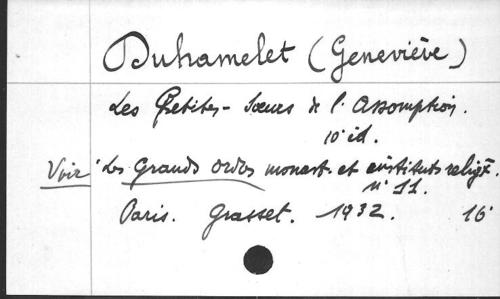 Duhamelet (Geneviève)
Les Petites-Sœurs de l'Assomption.
10e éd.
Voir Les Grands Ordres monast. et instituts relig.
n° 11.
Paris. Grasset. 1932. 16°